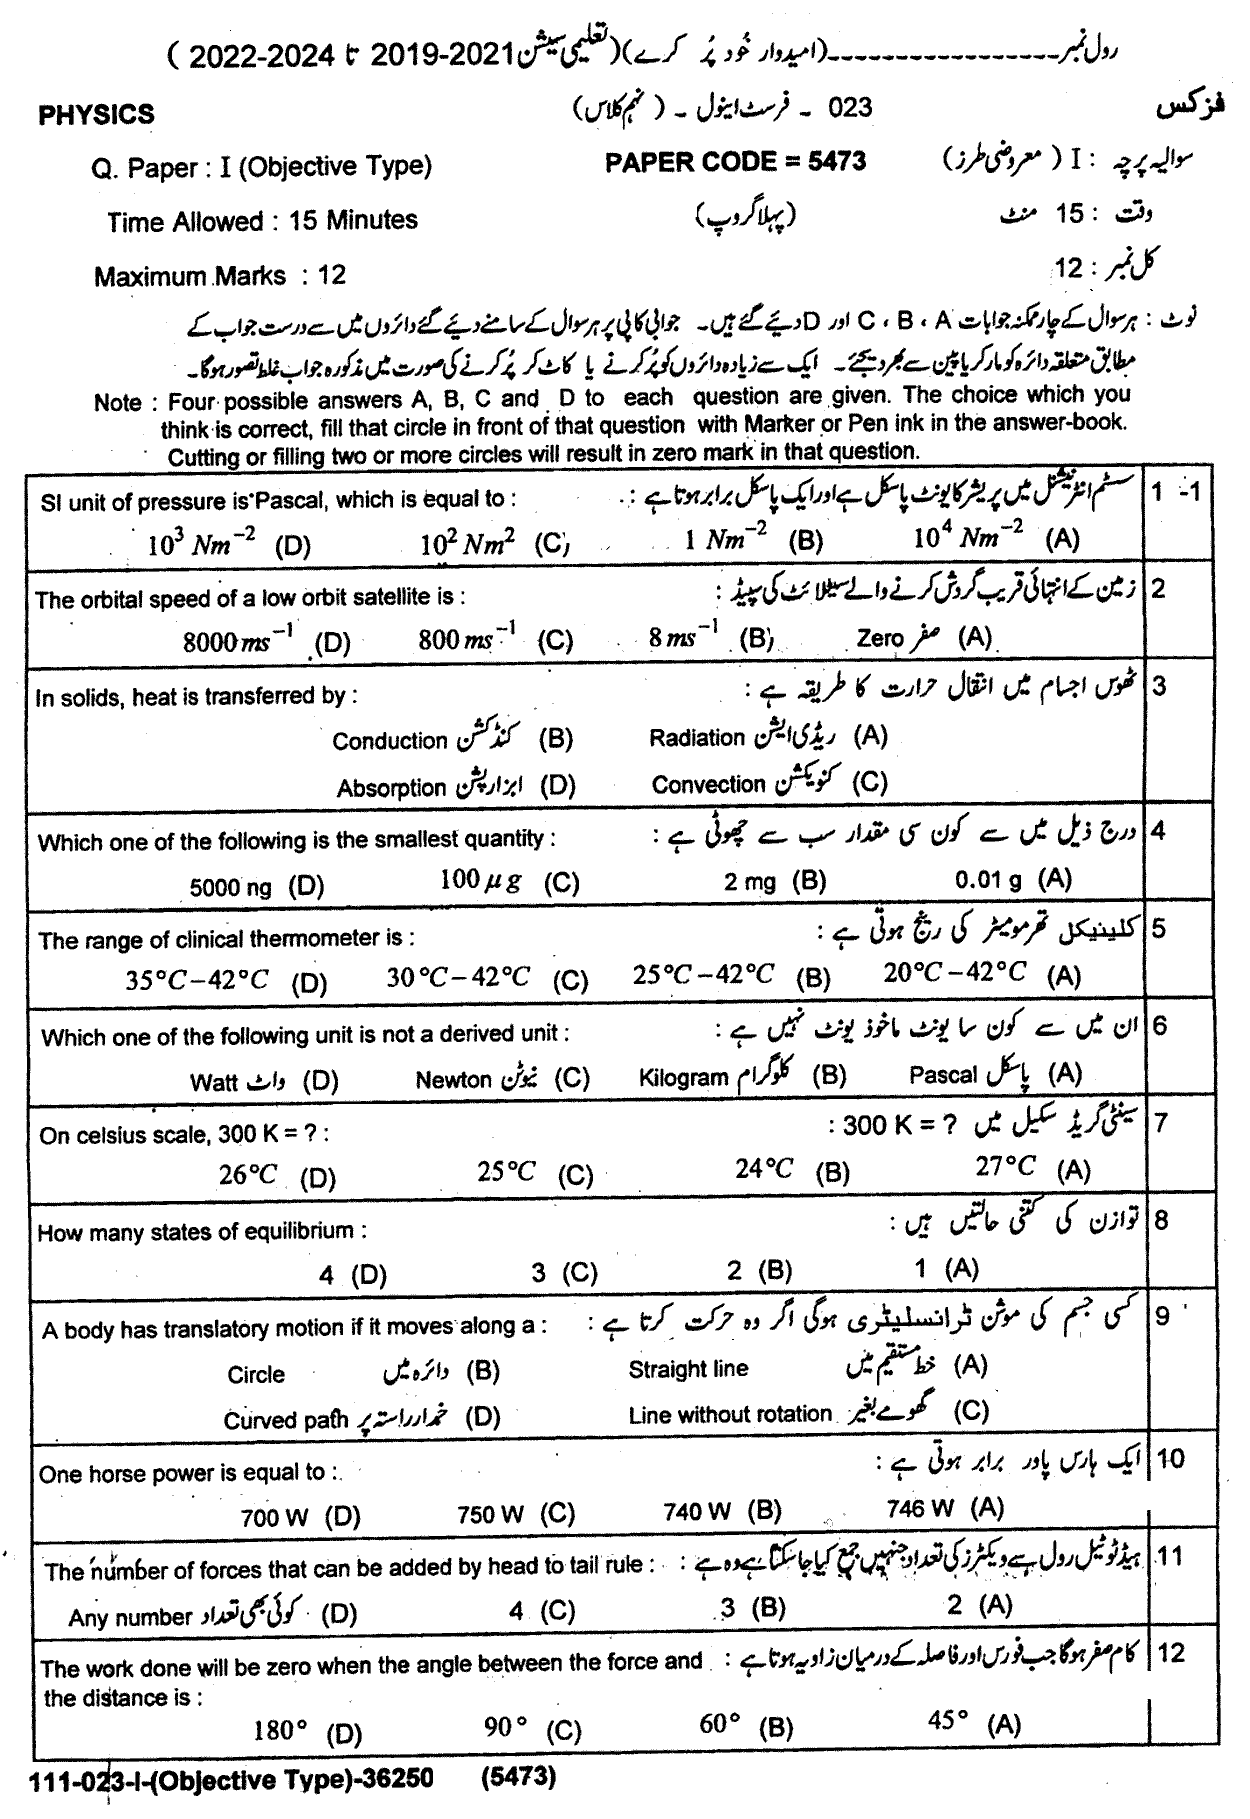 رول نمبر ـ ـ ـ ـ ـ ـ ـ ـ ـ ـ ـ ـ ـ ـ ـ ـ ـ (امیدوار خُود پُر کرے) (تعلیمی سیشن 2021-2019 تا 2024-2022 )
PHYSICS 023 ۔ فرسٹ اینول ۔ ( نہم کلاس) فزکس
Q. Paper : I (Objective Type) PAPER CODE = 5473 سوالیہ پرچہ : I ( معروضی طرز )
Time Allowed : 15 Minutes (پہلا گروپ) وقت : 15 منٹ
Maximum Marks : 12 کل نمبر : 12
نوٹ : ہر سوال کے چار ممکنہ جوابات A ، B ، C اور D دیئے گئے ہیں۔ جوابی کاپی پر ہر سوال کے سامنے دیئے گئے دائروں میں سے درست جواب کے
مطابق متعلقہ دائرہ کو مارکر یا پین سے بھر دیجئے۔ ایک سے زیادہ دائروں کو پُر کرنے یا کاٹ کر پُر کرنے کی صورت میں مذکورہ جواب غلط تصور ہوگا۔
Note : Four possible answers A, B, C and D to each question are given. The choice which you
think is correct, fill that circle in front of that question with Marker or Pen ink in the answer-book.
Cutting or filling two or more circles will result in zero mark in that question.
SI unit of pressure is Pascal, which is equal to : سسٹم انٹرنیشنل میں پریشر کا یونٹ پاسکل ہے اور ایک پاسکل برابر ہوتا ہے : 1 -1
10³ Nm⁻² (D) 10² Nm² (C) 1 Nm⁻² (B) 10⁴ Nm⁻² (A)
The orbital speed of a low orbit satellite is : زمین کے انتہائی قریب گردش کرنے والے سیٹلائٹ کی سپیڈ : 2
8000 ms⁻¹ (D) 800 ms⁻¹ (C) 8 ms⁻¹ (B) Zero صفر (A)
In solids, heat is transferred by : ٹھوس اجسام میں انتقال حرارت کا طریقہ ہے : 3
Conduction کنڈکشن (B) Radiation ریڈی ایشن (A)
Absorption ابزارپشن (D) Convection کنویکشن (C)
Which one of the following is the smallest quantity : درج ذیل میں سے کون سی مقدار سب سے چھوٹی ہے : 4
5000 ng (D) 100 μg (C) 2 mg (B) 0.01 g (A)
The range of clinical thermometer is : کلینیکل تھرمومیٹر کی رینج ہوتی ہے : 5
35°C – 42°C (D) 30°C – 42°C (C) 25°C – 42°C (B) 20°C – 42°C (A)
Which one of the following unit is not a derived unit : ان میں سے کون سا یونٹ ماخوذ یونٹ نہیں ہے : 6
Watt واٹ (D) Newton نیوٹن (C) Kilogram کلوگرام (B) Pascal پاسکل (A)
On celsius scale, 300 K = ? : سینٹی گریڈ سکیل میں 300 K = ? : 7
26°C (D) 25°C (C) 24°C (B) 27°C (A)
How many states of equilibrium : توازن کی کتنی حالتیں ہیں : 8
4 (D) 3 (C) 2 (B) 1 (A)
A body has translatory motion if it moves along a : کسی جسم کی موشن ٹرانسلیٹری ہوگی اگر وہ حرکت کرتا ہے : 9
Circle دائرہ میں (B) Straight line خط مستقیم میں (A)
Curved path خمدار راستہ پر (D) Line without rotation گھومے بغیر (C)
One horse power is equal to : ایک ہارس پاور برابر ہوتی ہے : 10
700 W (D) 750 W (C) 740 W (B) 746 W (A)
The number of forces that can be added by head to tail rule : ہیڈ ٹو ٹیل رول سے ویکٹرز کی تعداد جنہیں جمع کیا جا سکتا ہے وہ ہے : 11
Any number کوئی بھی تعداد (D) 4 (C) 3 (B) 2 (A)
The work done will be zero when the angle between the force and کام صفر ہوگا جب فورس اور فاصلہ کے درمیان زاویہ ہوتا ہے : 12
the distance is :
180° (D) 90° (C) 60° (B) 45° (A)
111-023-I-(Objective Type)-36250 (5473)